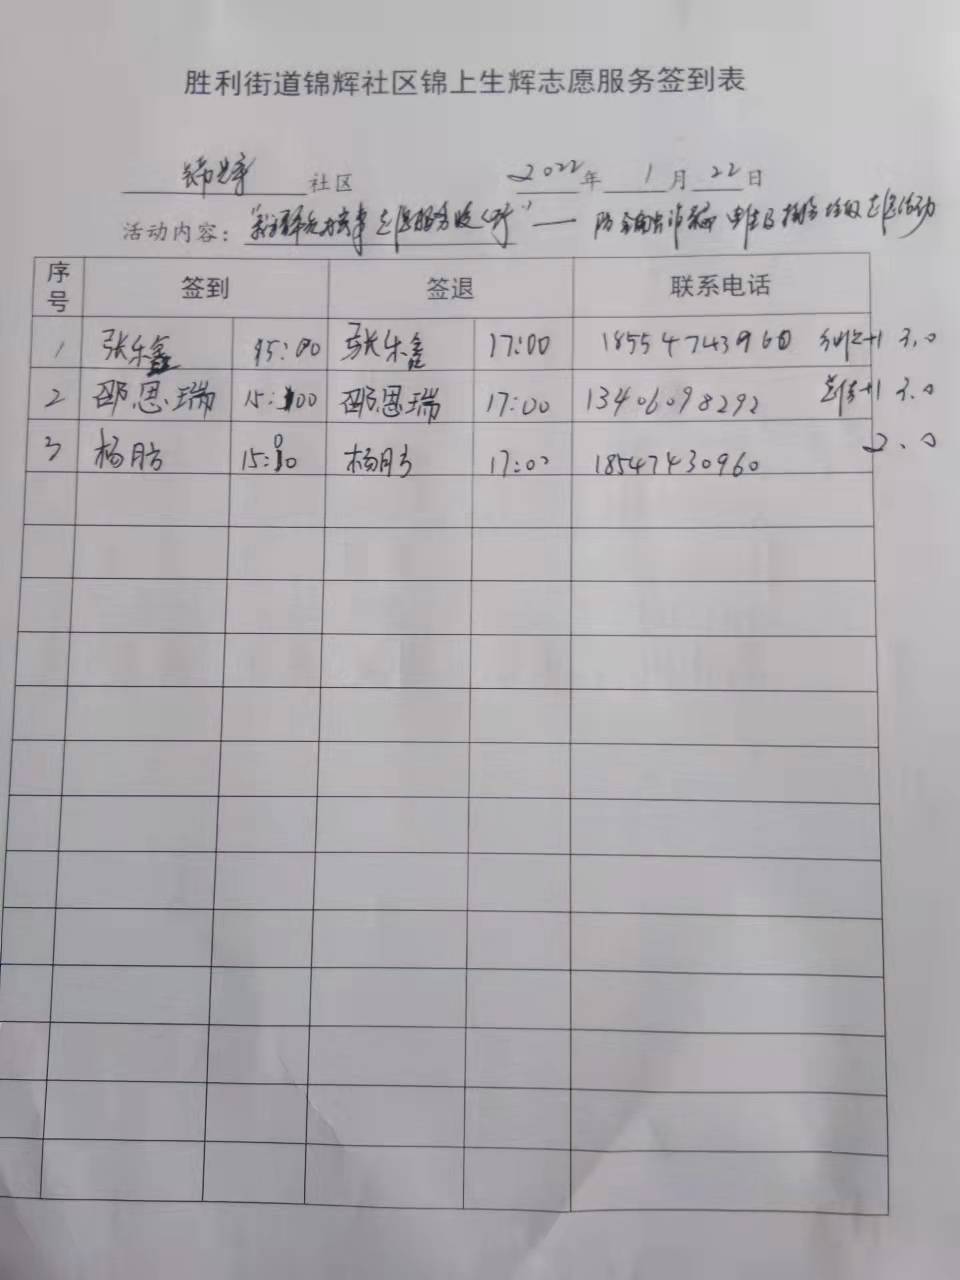 胜利街道锦辉社区锦上生辉志愿服务签到表
锦辉 社区 2022年 1 月 22 日
活动内容： 志愿服务 —— 防 诈骗 志愿活动
序号 签到 签退 联系电话
1 张乐鑫 15:00 张乐鑫 17:00 18554743960 +1 3.0
2 邵恩瑞 15:00 邵恩瑞 17:00 13406098292 +1 3.0
3 杨 15:00 杨 17:00 18547430960 2.0